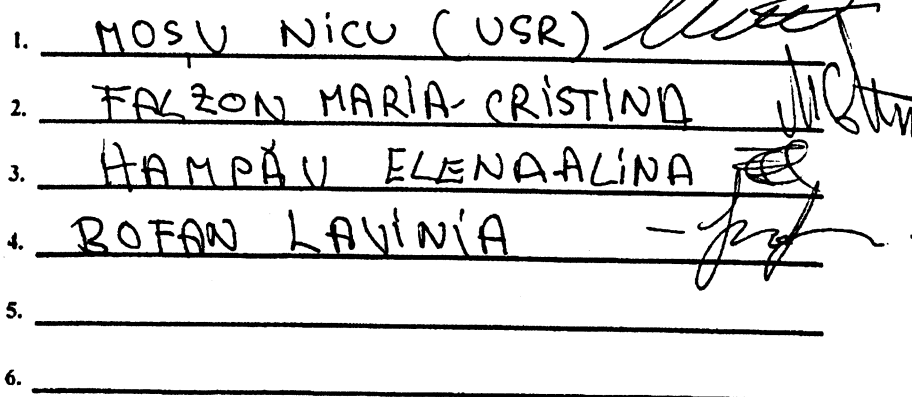 1. MOȘU NICU (USR)
2. FALZON MARIA-CRISTINA
3. HAMPĂU ELENA ALINA
4. BOFAN LAVINIA
5.
6.